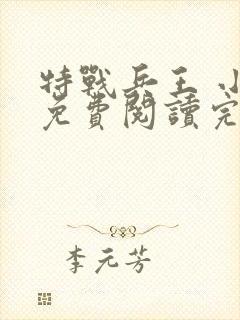 特戰兵王 小
免費閱讀完
李元芳